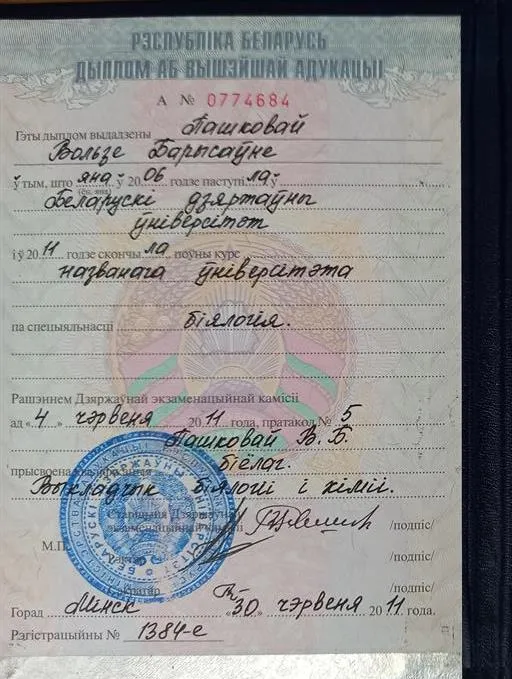 РЭСПУБЛІКА БЕЛАРУСЬ
ДЫПЛОМ АБ ВЫШЭЙШАЙ АДУКАЦЫІ
А № 0774684
Гэты дыплом выдадзены Пашковай
Вользе Барысаўне
ў тым, што яна ў 2006 годзе паступіла ў
(ён, яна)
Беларускі дзяржаўны
ўніверсітэт
і ў 2011 годзе скончыла поўны курс
названага ўніверсітэта
па спецыяльнасці біялогія.
Рашэннем Дзяржаўнай экзаменацыйнай камісіі
ад «4» чэрвеня 2011 года, пратакол № 5
Пашковай В. Б.
прысвоена кваліфікацыя біёлаг.
Выкладчык біялогіі і хіміі.
Старшыня Дзяржаўнай
экзаменацыйнай камісіі /подпіс/
М.П. Рэктар /подпіс/
Сакратар /подпіс/
Горад Мінск «30» чэрвеня 2011 года.
Рэгістрацыйны № 1384-е